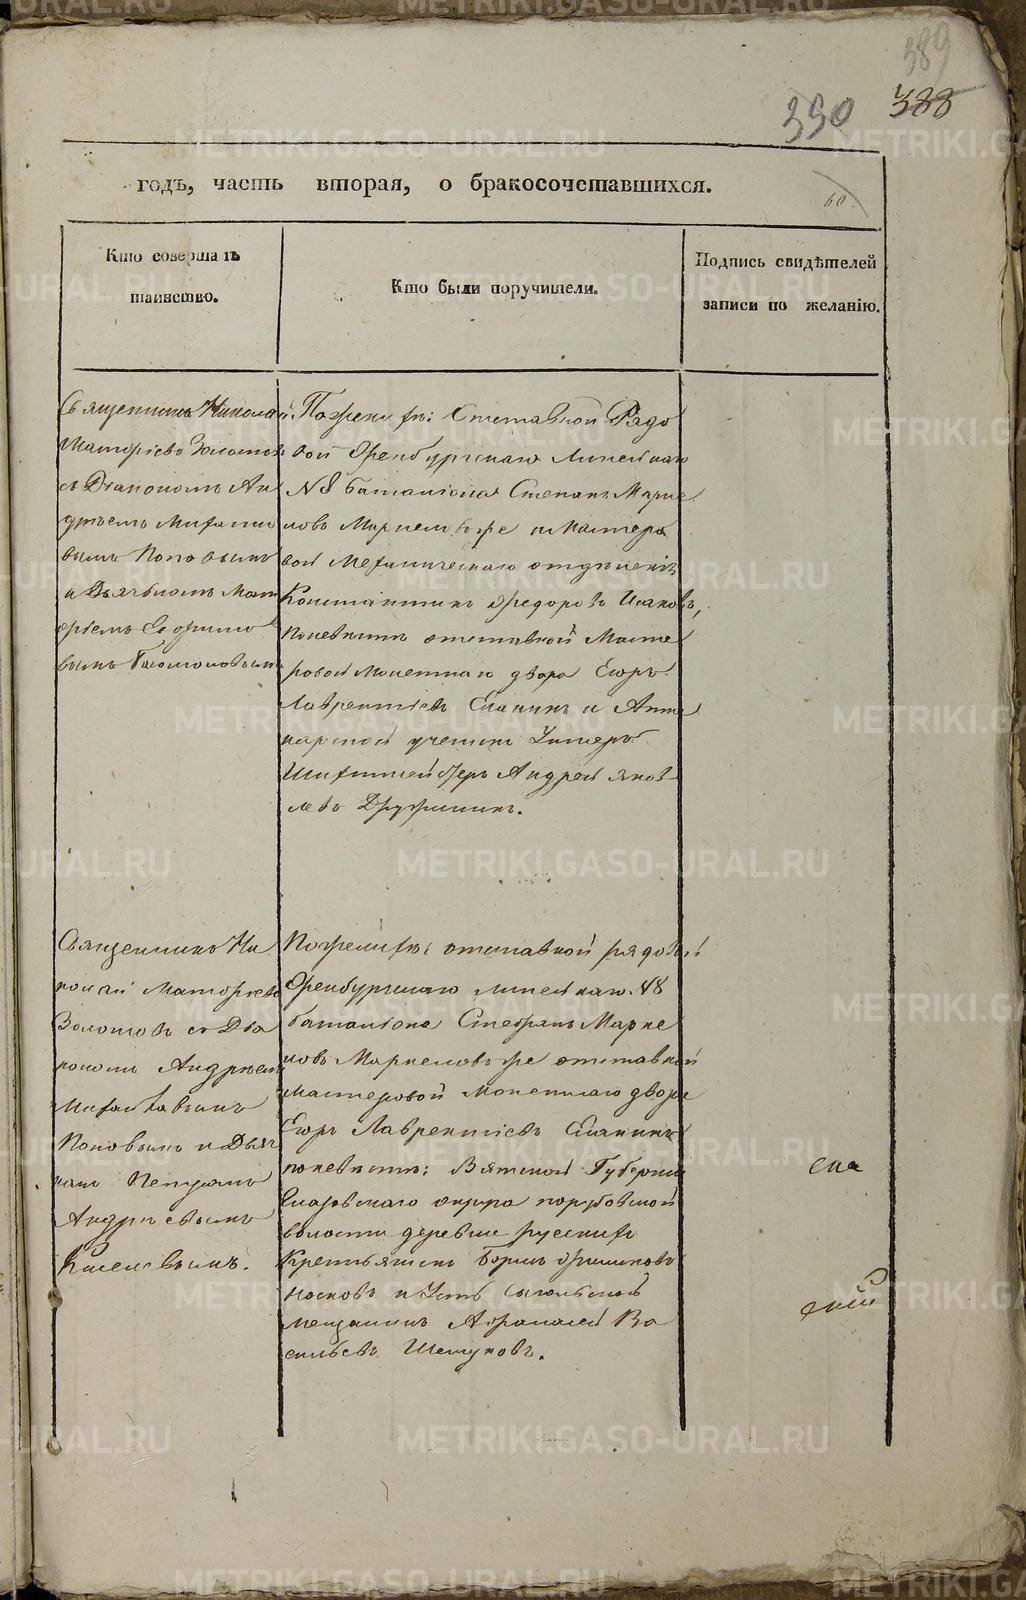 389
388
390
годъ, часть вторая, о бракосочетавшихся.
60.
Кто совершалъ
таинство.
Кто были поручители.
Подпись свидѣтелей
записи по желанію.
Священникъ Николай
Матѳіевъ Золотовъ
съ Діакономъ Ан
дреемъ
вымъ Поповымъ
и Дьячкомъ Мат
ѳіемъ Егоро
вымъ
По женихѣ: Отставной Рядо
вой Оренбургскаго Линейнаго
№8 баталіона Степанъ Марке
ловъ Маркеловъ же и Мастеро
вой Механическаго отдѣленія
Константинъ Ѳедоровъ Исаковъ,
по невѣстѣ отставной Масте
ровой Монетнаго двора Егоръ
Лаврентіевъ Еланинъ и Апте
карской ученикъ Унтеръ
Шихтмейстеръ Андрей Яков
левъ Дружининъ.
Священникъ Ни
колай Матѳіевъ
Золотовъ съ Діа
кономъ Андреемъ
Поповымъ и Дьяч
комъ Петромъ
Андреевымъ
Киселевымъ.
По женихѣ: отставной рядовой
Оренбургскаго линейнаго №8
баталіона Стефанъ Марке
ловъ Маркеловъ же отставной
мастеровой Монетнаго двора
Егоръ Лаврентіевъ Еланинъ
по невѣстѣ: Вятской Губерніи
округа
волости деревни Русскихъ
Крестьянинъ Борисъ
Носковъ и Усть Сысольской
мещанинъ Афанасей Ва
сильевъ Шешуковъ.
ска